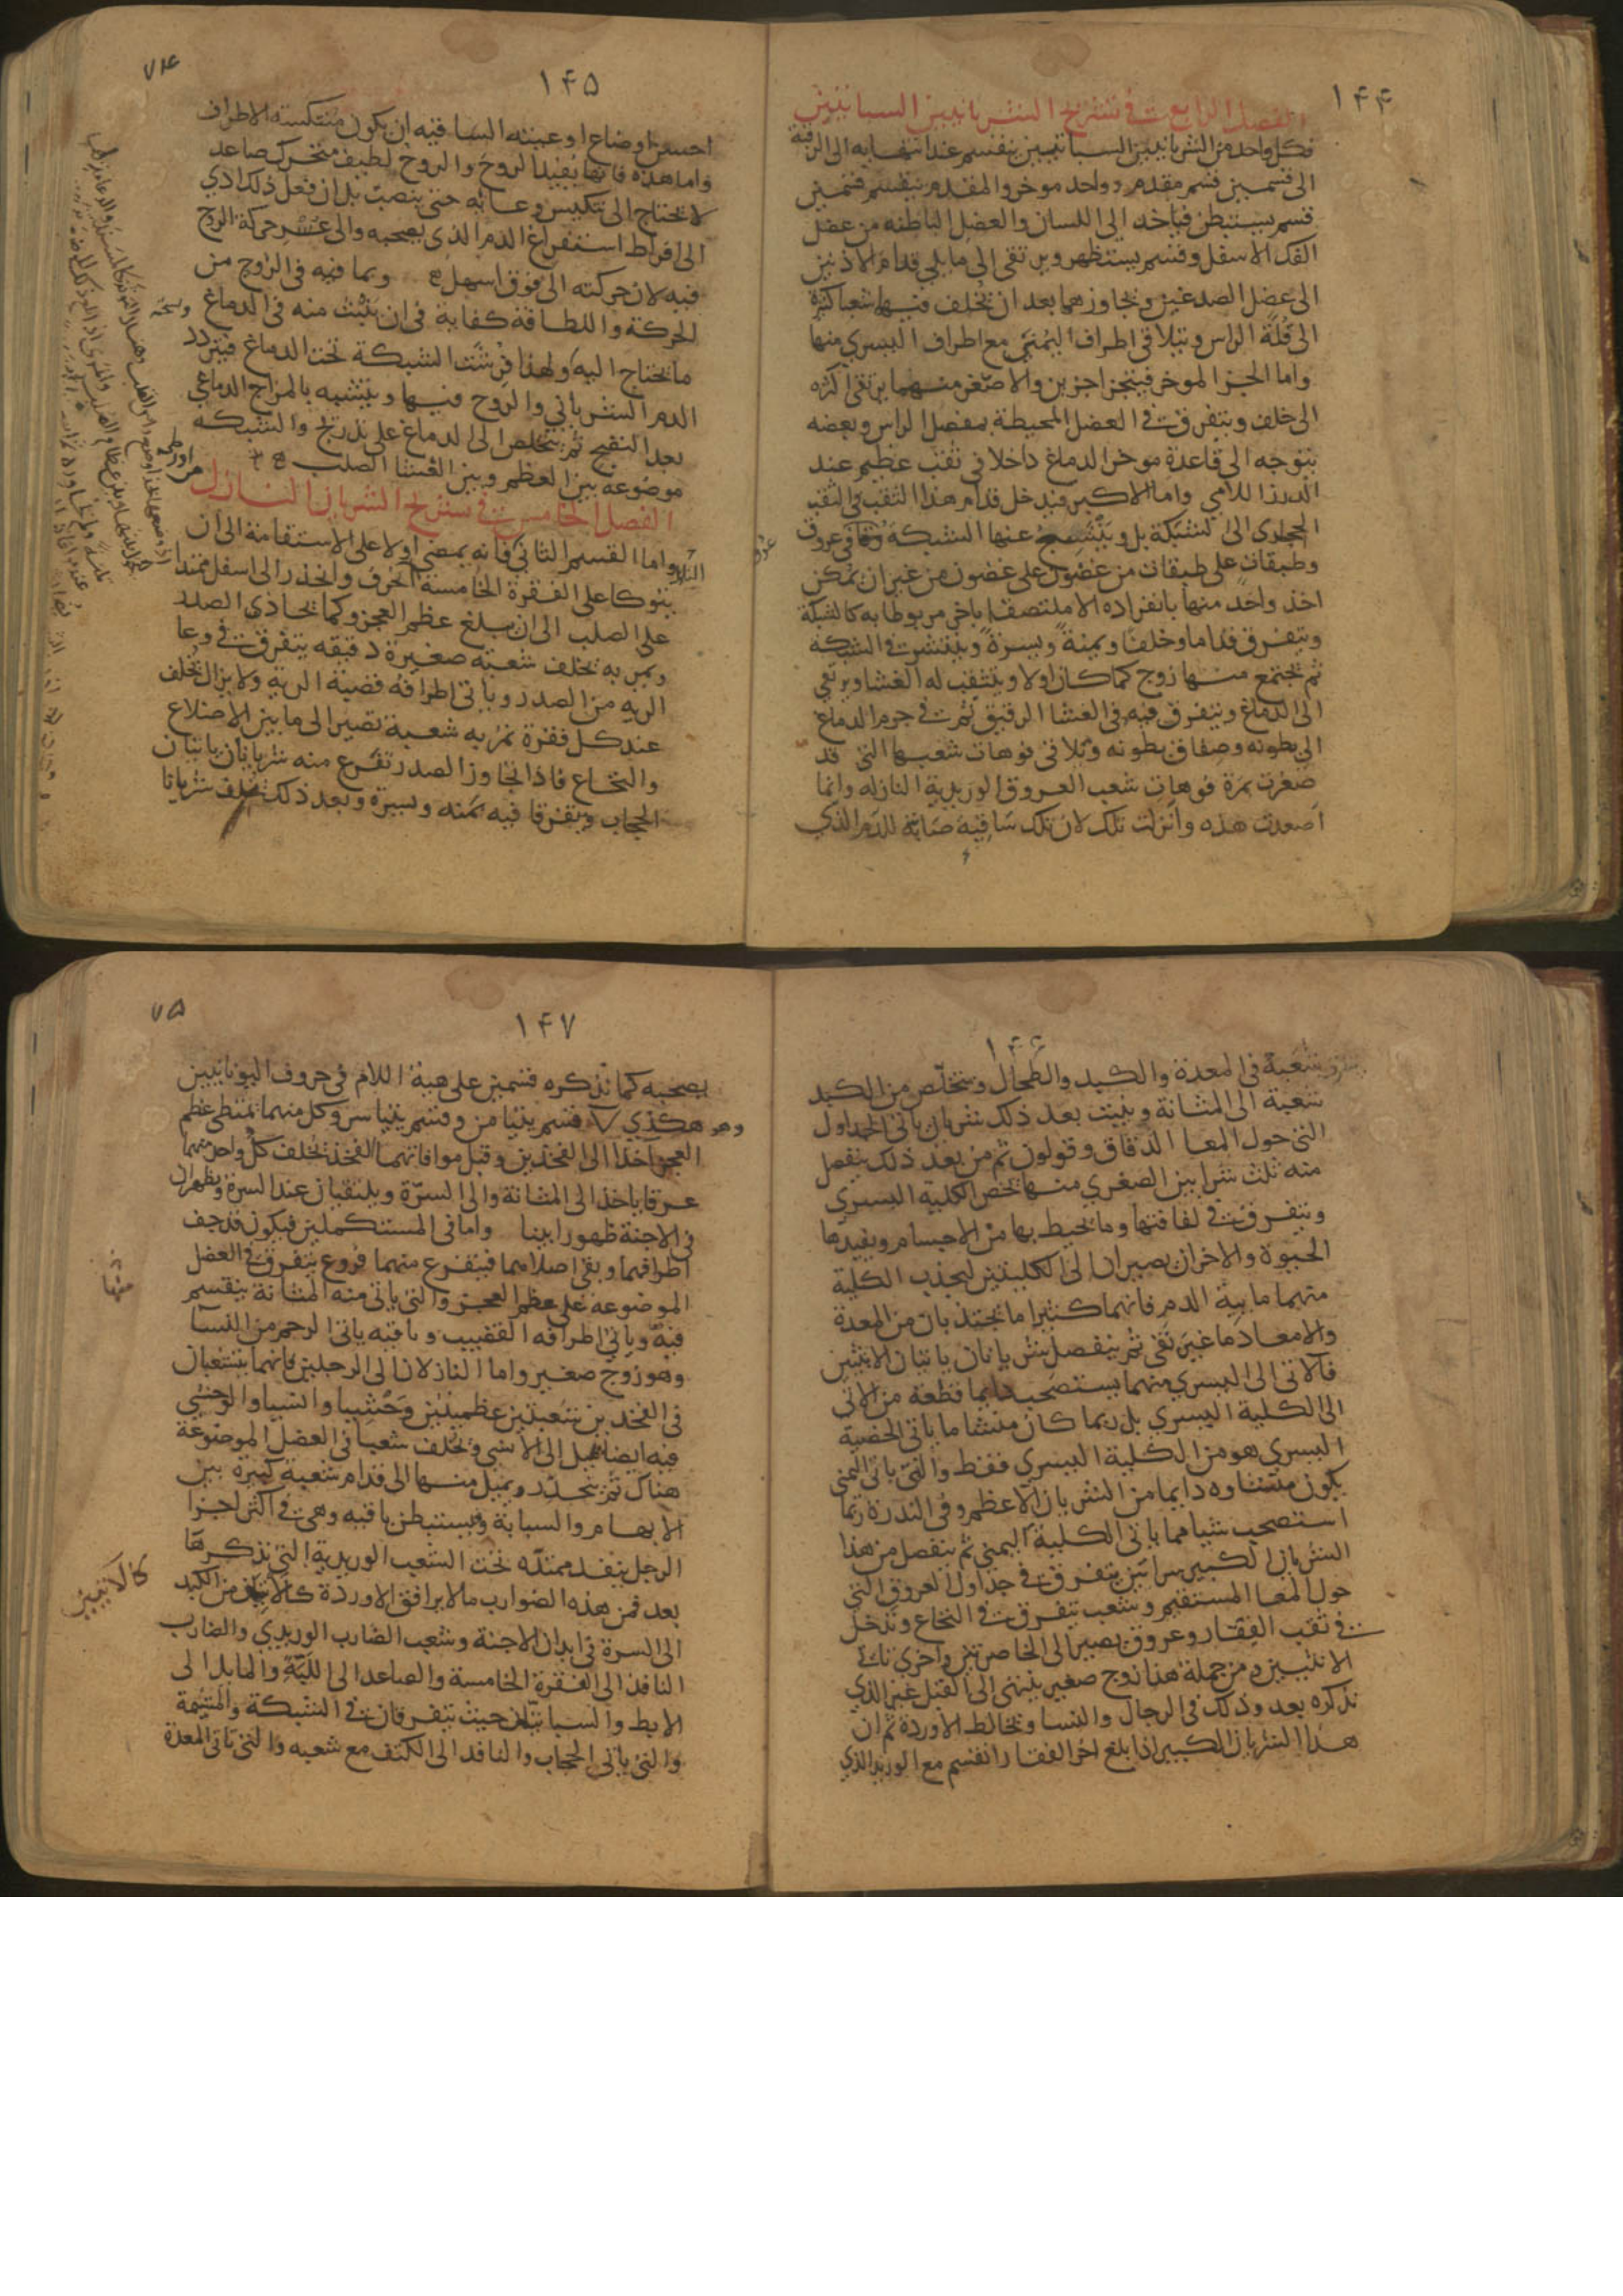 ١٤٤
الفصل الرابع في تشريح الشريانيين السباتيين
فكل واحد من الشريانيين السباتيين ينقسم عند انتهايه الى الرقبة
الى قسمين قسم مقدم وواحد موخر والمقدم ينقسم قسمين
قسم يستبطن فياخد الى اللسان والعضل الباطنه من عضل
الفك الاسفل وقسم يستظهر ويرتقى الى ما يلي قدام الاذنين
الى عضل الصدغين ويجاوزهما بعد ان يخلف فيها شعبا كثيرة
الى قلة الراس ويتلاقى اطراف اليمنى مع اطراف اليسري منها
واما الجز الموخر فيتجزا جزين والاصغر منهما يرتقى اكثره
الى خلف ويتفرق في العضل المحيطة بمفصل الراس وبعضه
يتوجه الى قاعدة موخر الدماغ داخلا في ثقب عظيم عند
الدرز اللامي واما الاكبر فيدخل قدام هذا الثقب في الثقب
الحجرى الى الشبكة بل وينتسج عنها الشبكة عروقا في عروق
وطبقات على طبقات من غضون على غضون من غير ان يمكن
اخذ واحد منها بانفراده الا ملتصقا باخر مربوطا به كالشبكة
ويتفرق قداما وخلفا ويمنة ويسرة وينتشر في الشبكة
ثم يجتمع منها زوج كما كان اولا وينثقب له الغشا ويرتقي
الى الدماغ ويتفرق فيه في الغشا الرقيق ثم في جرم الدماغ
الى بطونه وصفاق بطونه وتلاقى فوهات شعبها التى قد
صغرت بمرة فوهات شعب العروق الوريدية النازله وانما
اصعدت هذه وانزلت تلك لان تلك ساقية صابة للدم الذي
١٤٥
٧٤
احسن اوضاع اوعيته الساقيه ان يكون منتكسة الاطراف
واما هذه فانها يفيد الروح والروح لطيف متحرك صاعد
لا يحتاج الى تنكيس وعايه حتى ينصب بل ان فعل ذلك ادي
الى افراط استفراغ الدم الذى يصحبه والى عسر حركة الروح
فيه لان حركته الى فوق اسهل وبما فيه فى الروح من
الحركة واللطافة كفاية في ان ينبث منه فى الدماغ
ما يحتاج اليه ولهذا فرشت الشبكة تحت الدماغ فيتردد
الدم الشرياني والروح فيها ويتشبه بالمزاج الدماغي
بعد النضج ثم يتخلص الى الدماغ على تدريج والشبكه
موضوعه بين العظم وبين الغشا الصلب
الفصل الخامس في تشريح الشريان النازل
واما القسم الثاني فانه يمضي اولا على الاستقامة الى ان
يتوكا على الفقرة الخامسة وانحدر الى اسفل ممتدا
على الصلب الى ان يبلغ عظم العجز وكما يحاذي الصدر
ويمر به يخلف شعبة صغيرة دقيقه يتفرق في وعا
الريه من الصدر وياتى اطرافه قصبة الرية ولا يزال يخلف
عند كل فقرة تمر به شعبة تصير الى ما بين الاضلاع
والنخاع فاذا تجاوز الصدر تفرع منه شريانان ياتيان
الحجاب ويتفرقا فيه يمنه ويسرة وبعد ذلك يخلف شريانا
١٤٦
شعبة في المعدة والكبد والطحال ويتخلص من الكبد
شعبة الى المثانة وينبت بعد ذلك شريان ياتى الجداول
التى حول المعا الدقاق وقولون ثم من بعد ذلك ينفصل
منه ثلث شرايين الصغري منها تخص الكلية اليسري
ويتفرق في لفافتها وما يحيط بها من الاجسام ويفيدها
الحيوة والاخران يصيران الى الكليتين ليجذب الكلية
منهما ماية الدم فانهما كثيرا ما يجتذبان من المعدة
والامعا دما غير نقى ثم ينفصل شريانان ياتيان الانثيين
فالاتى الى اليسري منهما يستصحب دايما قطعة من الاتي
الى الكلية اليسري بل ربما كان منشا ما ياتي الخصية
اليسري هو من الكلية اليسري فقط والتي ياتى اليمنى
يكون منشاوه دايما من الشريان الاعظم وفي الندرة ربما
استصحب شيا مما ياتى الكلية اليمني ثم ينفصل من هذا
الشريان الكبير شرايين يتفرق في جداول العروق التي
حول المعا المستقيم وشعب يتفرق في النخاع وتدخل
في ثقب الفقار وعروق يصير الى الخاصرتين واخري تاتى
الانثيين ومن جملة هذا زوج صغير ينتهى الى القبل غير الذي
نذكره بعد وذلك فى الرجال والنسا ويخالط الاوردة ثم ان
هذا الشريان الكبير اذا بلغ اخر الفقار انقسم مع الوريد الذي
١٤٧
٧٥
يصحبه كما نذكره قسمين على هية اللام فى حروف اليونانيين
وهو هكذي ٧ قسم يتيامن وقسم يتياسر وكل منهما يمتطى عظم
العجز اخذا الى الفخذين وقبل موافاتهما الفخذ يخلف كل واحد منهما
عرقا ياخذ الى المثانة والى السرة ويلتقيان عند السرة ويظهران
فى الاجنة ظهورا بينا واما فى المستكملين فيكون قد جف
اطرافهما وبقى اصلاهما فيتفرع منهما فروع يتفرق في العضل
الموضوعه على عظم العجز والتى ياتى منه المثانة ينقسم
فيه وياتى اطرافه القضيب وباقيه ياتى الرحم من النسا
وهو زوج صغير واما النازلان الى الرجلين فانهما يتشعبان
فى الفخذين شعبتين عظيمتين وحشيا وانسيا والوحشي
فيه ايضا ميل الى الانسي ويخلف شعبا فى العضل الموضوعة
هناك ثم يتحدر ويميل منها الى قدام شعبة كبيرة بين
الابهام والسبابة ويستبطن باقيه وهى فى اكثر اجزا
الرجل ينفد ممتده تحت الشعب الوريدية التى نذكرها
بعد فمن هذه الضوارب ما لا يرافق الاوردة كالاتيين من الكبد
كالاتيين
الى السرة فى ابدان الاجنة وشعب الضارب الوريدي والضارب
النافذ الى الفقرة الخامسة والصاعد الى اللبة والمايل الى
الابط والسباتيان حيث يتفرقان في الشبكة والمشيمة
والتى ياتى الحجاب والنافد الى الكتف مع شعبه والتى تاتى المعدة